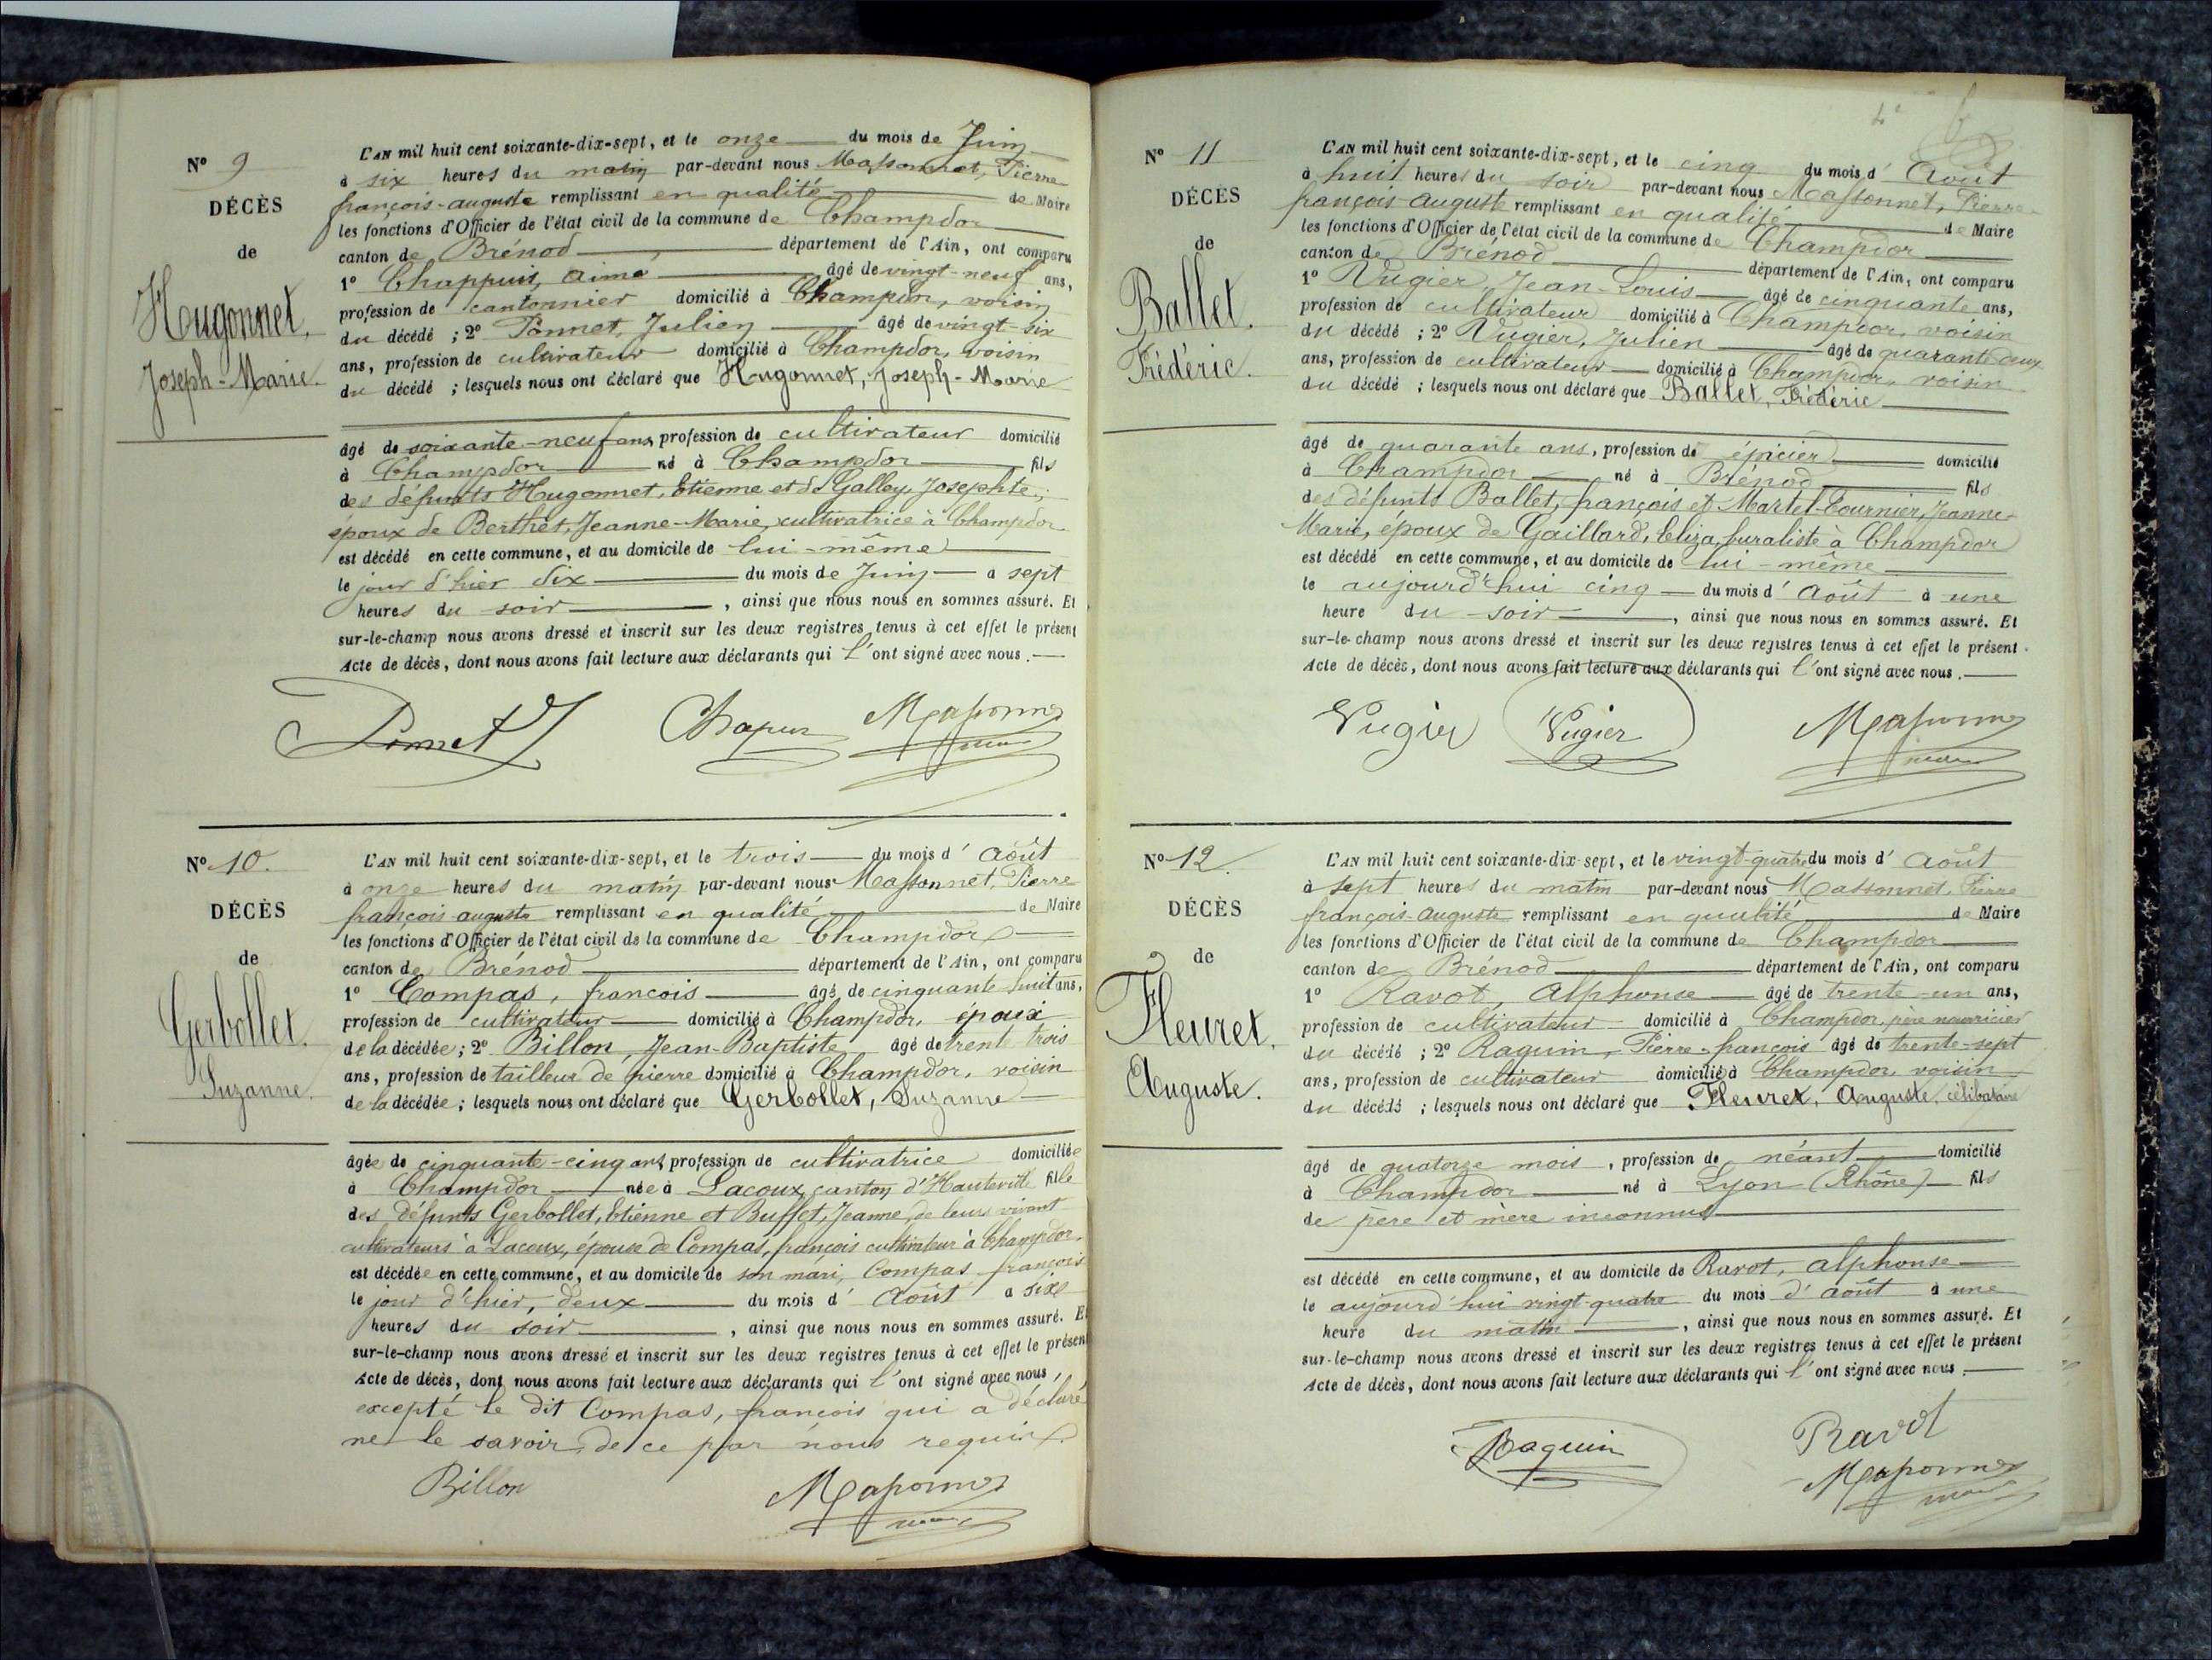 Nº 9
DÉCÈS
de
Hugonnet,
Joseph-Marie.
L'AN mil huit cent soixante-dix-sept, et le onze du mois de Juin
à six heures du matin par-devant nous Massonnet, Pierre
françois-auguste remplissant en qualité de Maire
les fonctions d'Officier de l'état civil de la commune de Champdor
canton de Brénod, département de l'Ain, ont comparu
1º Chappuis, aimé âgé de vingt-neuf ans,
profession de cantonnier domicilié à Champdor, voisin
du décédé ; 2º Ponnet, Julien âgé de vingt-six
ans, profession de cultivateur domicilié à Champdor, voisin
du décédé ; lesquels nous ont déclaré que Hugonnet, Joseph-Marie
âgé de soixante-neuf ans, profession de cultivateur domicilié
à Champdor né à Champdor fils
des défunts Hugonnet, Etienne et de Galley, Josephte,
époux de Berthet, Jeanne-Marie, cultivatrice à Champdor
est décédé en cette commune, et au domicile de lui-même
le jour d'hier dix du mois de Juin à sept
heures du soir, ainsi que nous nous en sommes assuré. Et
sur-le-champ nous avons dressé et inscrit sur les deux registres tenus à cet effet le présent
Acte de décès, dont nous avons fait lecture aux déclarants qui l'ont signé avec nous.
Chapuis
Nº 10.
DÉCÈS
de
Gerbollet.
Suzanne.
L'AN mil huit cent soixante-dix-sept, et le trois du mois d'Août
à onze heures du matin par-devant nous Massonnet, Pierre
françois-auguste remplissant en qualité de Maire
les fonctions d'Officier de l'état civil de la commune de Champdor
canton de Brénod département de l'Ain, ont comparu
1º Compas, françois âgé de cinquante-huit ans,
profession de cultivateur domicilié à Champdor, époux
de la décédée ; 2º Billon, Jean-Baptiste âgé de trente trois
ans, profession de tailleur de pierre domicilié à Champdor, voisin
de la décédée ; lesquels nous ont déclaré que Gerbollet, Suzanne
âgée de cinquante-cinq ans, profession de cultivatrice domiciliée
à Champdor née à Lacoux, canton d'Hauteville fille
des défunts Gerbollet, Etienne et Buffet, Jeanne, de leur vivant
cultivateurs à Lacoux, épouse de Compas, françois cultivateur à Champdor,
est décédée en cette commune, et au domicile de son mari, Compas françois
le jour d'hier, deux du mois d'Août à six
heures du soir, ainsi que nous nous en sommes assuré. Et
sur-le-champ nous avons dressé et inscrit sur les deux registres tenus à cet effet le présent
Acte de décès, dont nous avons fait lecture aux déclarants qui l'ont signé avec nous,
excepté le dit Compas, françois qui a déclaré
ne le savoir, de ce par nous requis.
Billon
Nº 11
DÉCÈS
de
Ballet.
Frédéric.
L'AN mil huit cent soixante-dix-sept, et le cinq du mois d'Août
à huit heures du soir par-devant nous Massonnet, Pierre
françois-auguste remplissant en qualité de Maire
les fonctions d'Officier de l'état civil de la commune de Champdor
canton de Brénod département de l'Ain, ont comparu
1º Vugier, Jean-Louis âgé de cinquante ans,
profession de cultivateur domicilié à Champdor, voisin
du décédé ; 2º Vugier, Julien âgé de quarante-deux
ans, profession de cultivateur domicilié à Champdor, voisin
du décédé ; lesquels nous ont déclaré que Ballet, Frédéric
âgé de quarante ans, profession de épicier domicilié
à Champdor né à Brénod fils
des défunts Ballet, françois et Martel-Tournier, Jeanne-
Marie, époux de Gaillard, Eliza, buraliste à Champdor
est décédé en cette commune, et au domicile de lui-même
le aujourd'hui cinq du mois d'Août à une
heure du soir, ainsi que nous nous en sommes assuré. Et
sur-le-champ nous avons dressé et inscrit sur les deux registres tenus à cet effet le présent
Acte de décès, dont nous avons fait lecture aux déclarants qui l'ont signé avec nous.
Vugier Vugier
Nº 12.
DÉCÈS
de
Fleuret,
Auguste.
L'AN mil huit cent soixante-dix-sept, et le vingt-quatre du mois d'Août
à sept heures du matin par-devant nous Massonnet, Pierre
françois-Auguste remplissant en qualité de Maire
les fonctions d'Officier de l'état civil de la commune de Champdor
canton de Brénod département de l'Ain, ont comparu
1º Ravot, Alphonse âgé de trente-un ans,
profession de cultivateur domicilié à Champdor, père nourricier
du décédé ; 2º Raquin, Pierre-françois âgé de trente-sept
ans, profession de cultivateur domicilié à Champdor, voisin
du décédé ; lesquels nous ont déclaré que Fleuret, Auguste, célibataire
âgé de quatorze mois, profession de néant domicilié
à Champdor né à Lyon (Rhône) fils
de père et mère inconnus
est décédé en cette commune, et au domicile de Ravot, alphonse
le aujourd'hui vingt-quatre du mois d'août à une
heure du matin, ainsi que nous nous en sommes assuré. Et
sur-le-champ nous avons dressé et inscrit sur les deux registres tenus à cet effet le présent
Acte de décès, dont nous avons fait lecture aux déclarants qui l'ont signé avec nous.
Raquin
Ravot